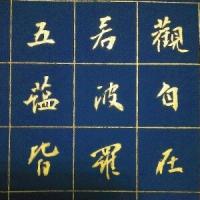 觀自在
若波羅
五蘊皆